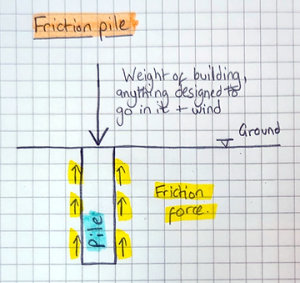 Friction pile
Weight of building,
anything designed to
go in it + wind
Ground
Friction
force.
Pile